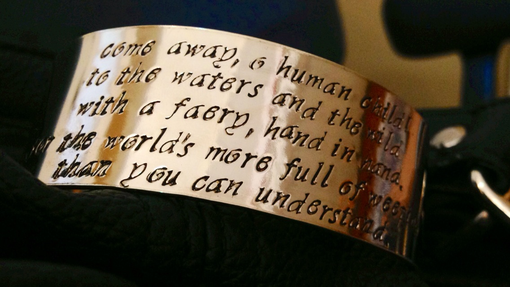 come away, o human child!
to the waters and the wild
with a faery, hand in hand,
for the world's more full of weeping
than you can understand.